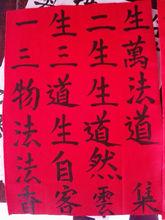 一生二生
三三生萬
物道生法
法生道道
法自然
香客雲集